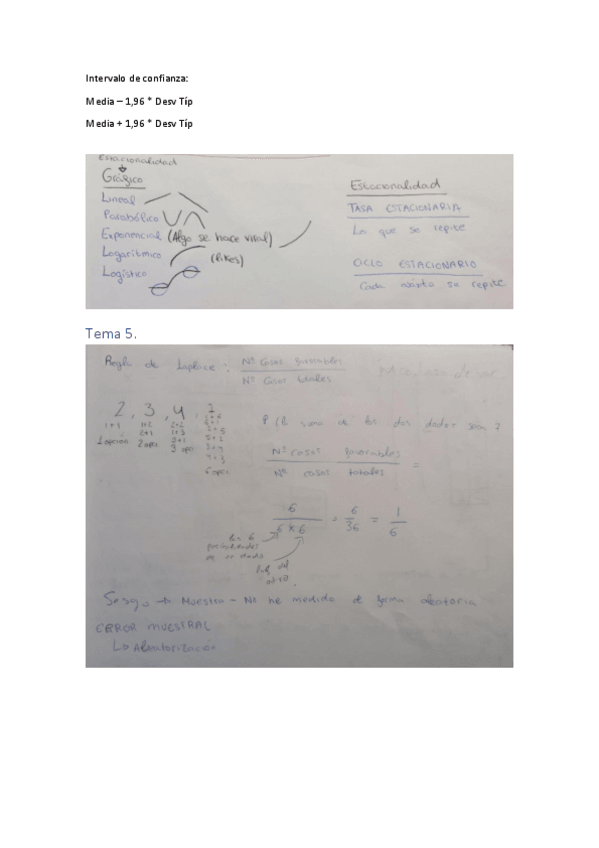 Intervalo de confianza:
Media – 1,96 * Desv Típ
Media + 1,96 * Desv Típ
Estacionalidad
Gráfico
Lineal
Parabólico
Exponencial (Algo se hace viral)
Logarítmico (likes)
Logístico
Estacionalidad
TASA ESTACIONARIA
Lo que se repite
CICLO ESTACIONARIO
Cada cuánto se repite
Tema 5.
Regla de Laplace: Nº Casos favorables
Nº Casos totales
2, 3, 4, 7
1+1
1+2
2+1
2+2
1+3
3+1
1 opción
2 opci
3 opci
6 opci
P (la suma de los dos dados sea 7
Nº casos favorables
Nº casos totales =
6
6 * 6
= 6
36
= 1
6
las 6
posibilidades
de un dado
Pob del
otro.
Sesgo → Muestra – No he medido de forma aleatoria
ERROR MUESTRAL
Aleatorización